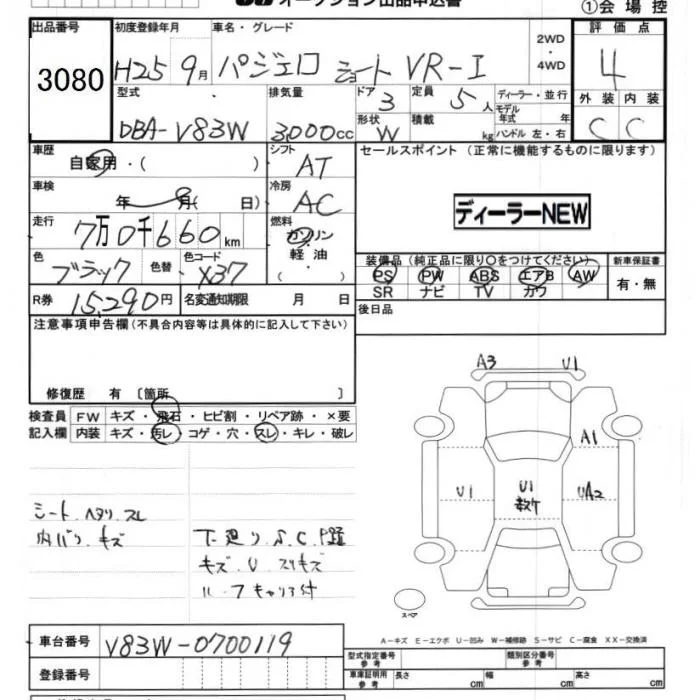 オークション出品申込書
①会場控
出品番号 初度登録年月 車名・グレード 2WD・4WD 評価点
3080 H25 9月 パジェロ ショート VR-I 4
型式 排気量 ドア 3 定員 5人 ディーラー・並行 外装 内装
モデル年式 年
DBA-V83W 3,000cc 形状 W 積載 kg ハンドル 左・右 C C
車歴 自家用・( ) シフト AT セールスポイント (正常に機能するものに限ります)
車検 年 月( 日) 冷房 AC
ディーラーNEW
走行 7万0千660km 燃料 ガソリン
軽油
( )
色 ブラック 色替 色コード X37
装備品(純正品に限り○をつけてください) 新車保証書
PS PW ABS エアB AW 有・無
SR ナビ TV カワ
R券 15,290円 名変通知期限 月 日
後日品
注意事項申告欄(不具合内容等は具体的に記入して下さい)
修復歴 有 〔箇所 〕
検査員 FW キズ・飛石・ヒビ割・リペア跡・×要
記入欄 内装 キズ・汚レ・コゲ・穴・スレ・キレ・破レ
シート ヘタリ スレ
内バリ キズ
下廻り S.C
キズ U スリキズ
ルーフキャリア付
A3 U1
A1
U1 U1 UA2
スペア
A-キズ E-エクボ U-凹み W-補修跡 S-サビ C-腐食 XX-交換済
車台番号 V83W-0700119
型式指定番号 参考 類別区分番号 参考
登録番号
車庫証明用 参考 長さ cm 幅 cm 高さ cm